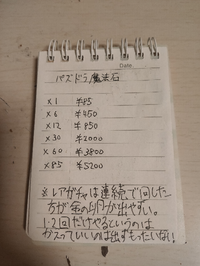 Date
パズドラ魔法石
×1 ¥85
×6 ¥450
×12 ¥850
×30 ¥2000
×60 ¥3800
×85 ¥5200
※レアガチャは連続で回した
方が金の卵が出やすい。
1~2回だけやるというのは
カスっていいのは出ずもったいない!